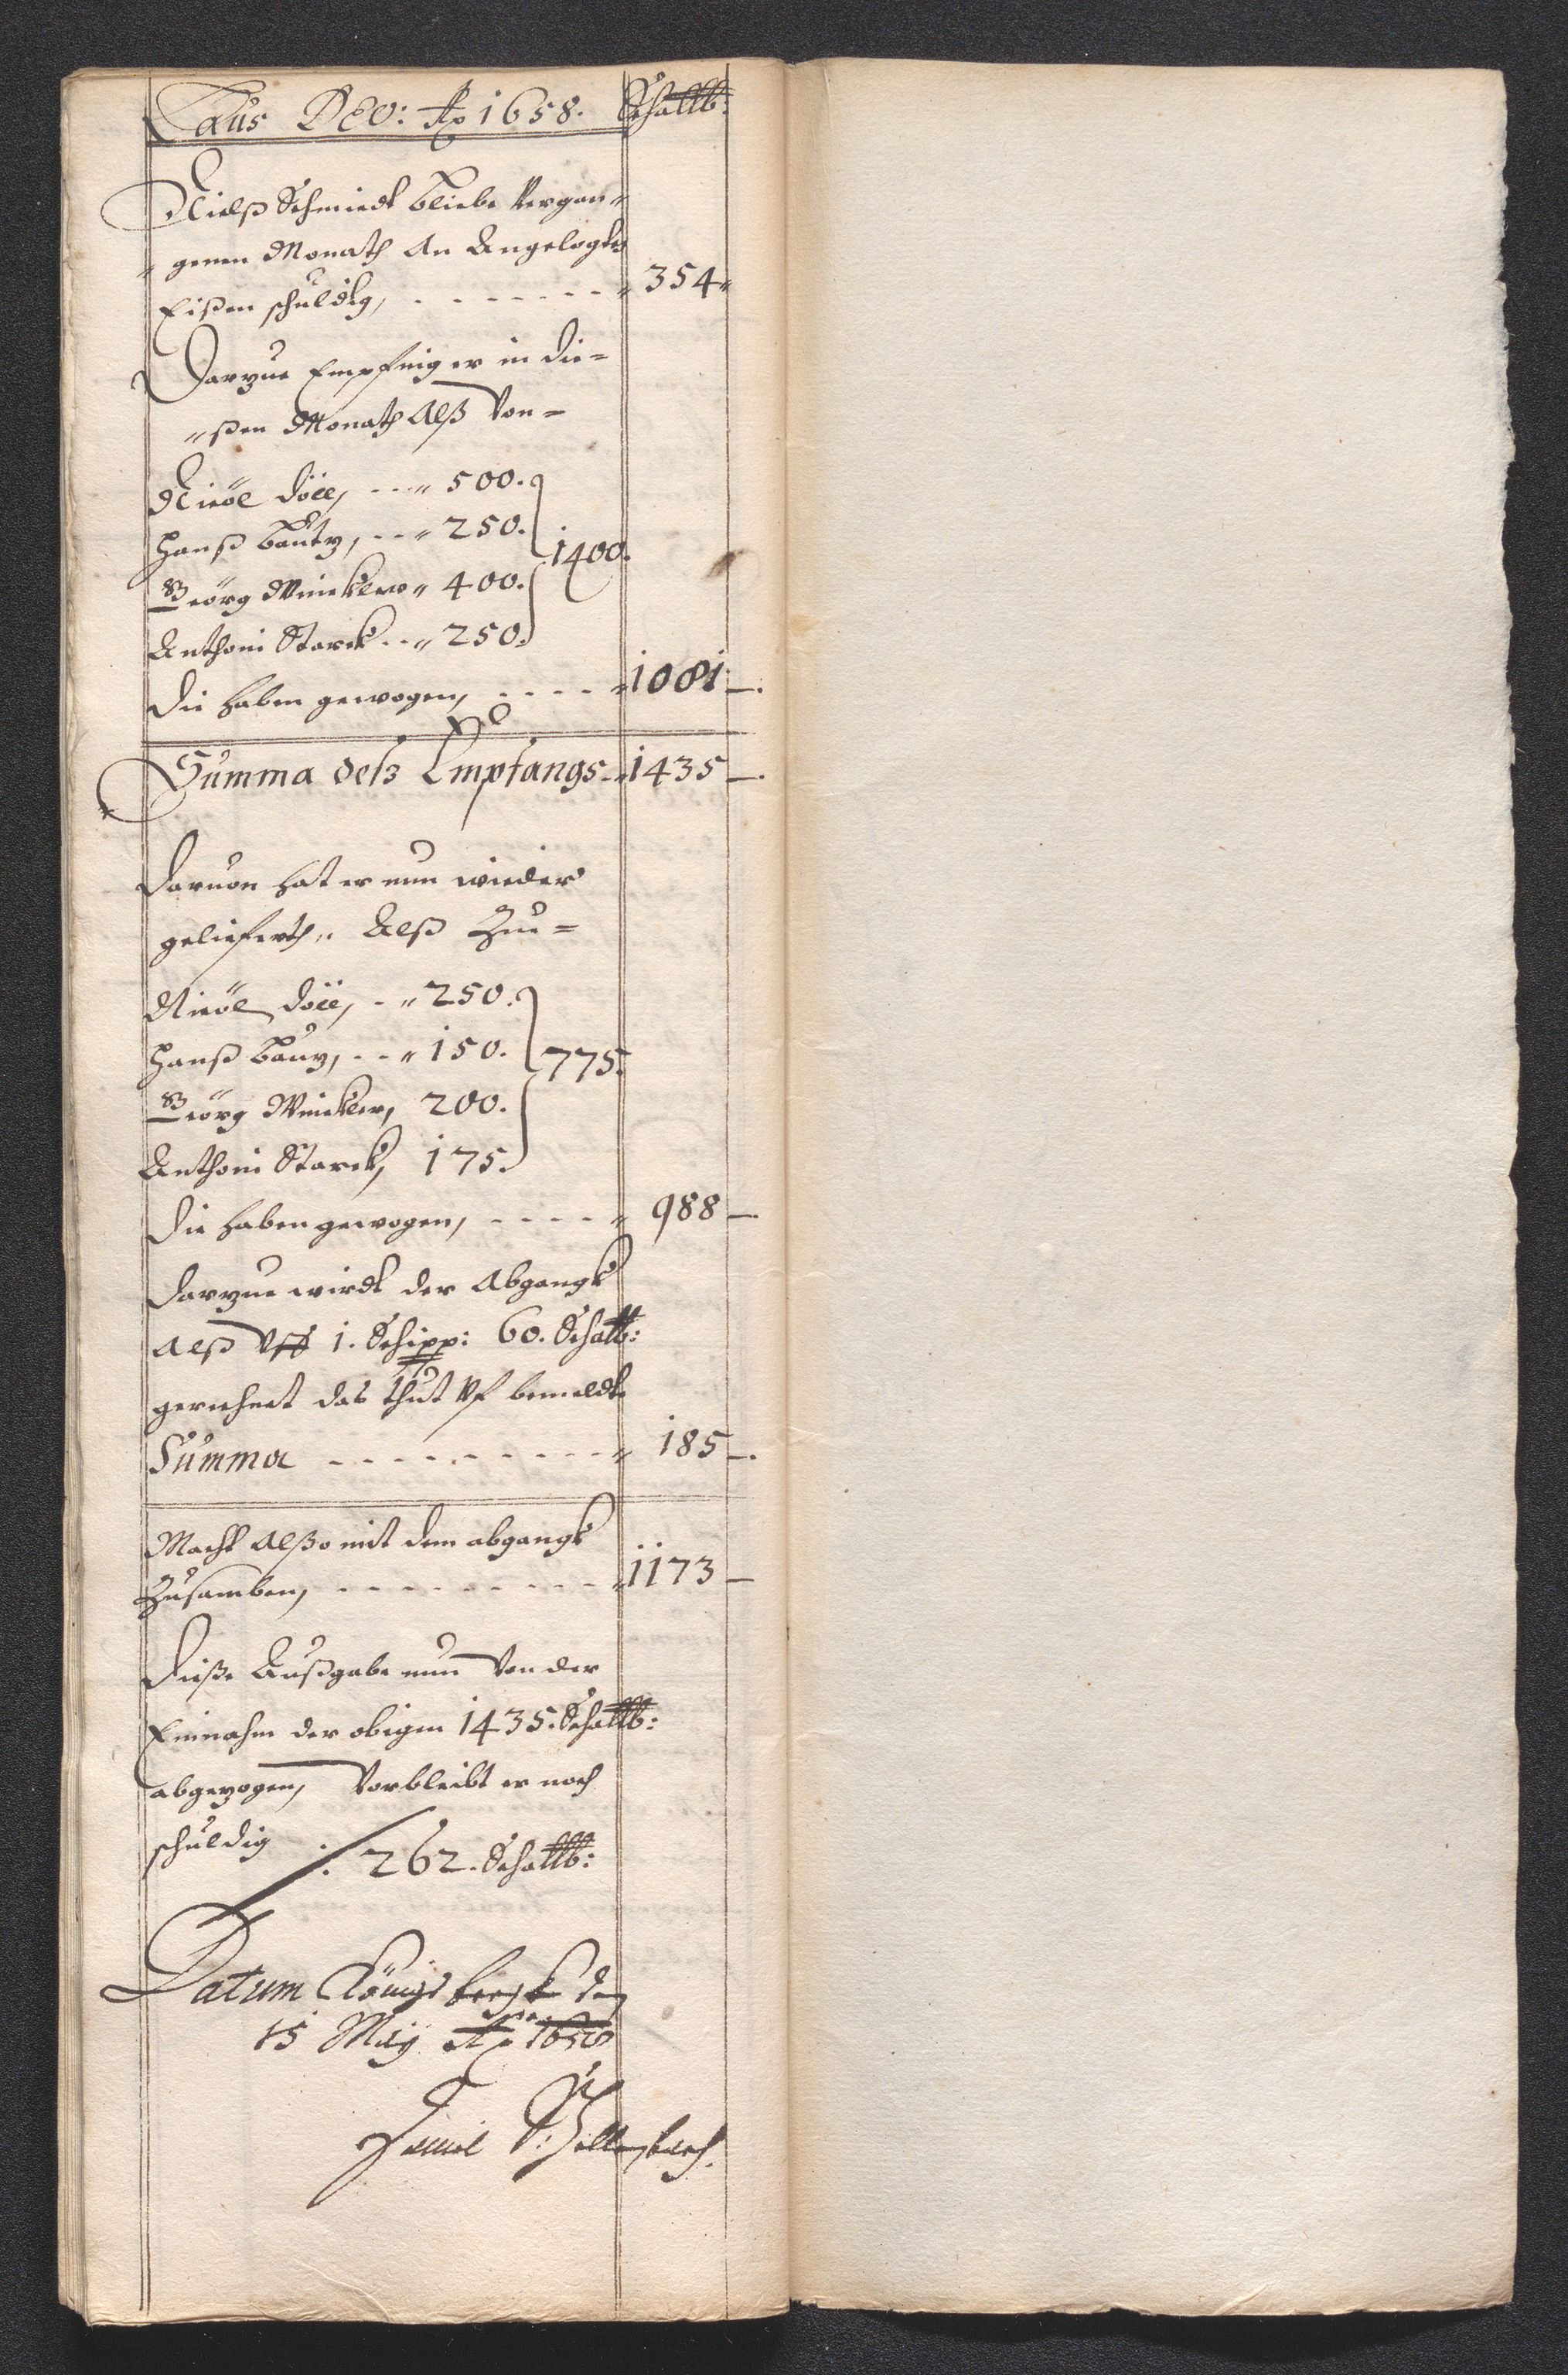 Laus DEO: Ao 1658. Schallb:
Nielß Schmiedt bliebe Vergan-
genen Monath An Angelegtes
Eißen schuldig, - - - - - - - - " 354 "
Darzue Empfing er in die=
"ßen Monath Alß Von=
Nicöl Döll, - - - " 500.
Hanß Bautz, - - " 250.
1400.
Geörg Winckler " 400.
Anthoni Starck - - " 250.
Die haben gewogen, - - - - " 1081 —.
Summa deß Empfangs - " 1435 —.
Daruon hat er nun wieder
gelieferth, Alß Zue=
Nicöl Döll, - " 250.
Hanß Bauz, - - " 150.
775.
Geörg Winckler, 200.
Anthoni Starck, 175.
Die haben gewogen, - - - - " 988 —.
Darzue wirdt der Abgangk
Alß Vff 1. Schipp: 60. Schallb:
gerechnet das thut Vf bemeldte
Summa - - - - - - - - - " 185 —.
Macht Allßo mit dem abgangk
Zusamben, - - - - - - - - - " 1173 —
Dieße Außgabe nun Von der
Einnahm der obigen 1435. Schallb:
abgezogen, Vorbleibt er noch
schuldig ./. 262. Schallb:
Datum Königsbergk den
15 Maij Ao 1658